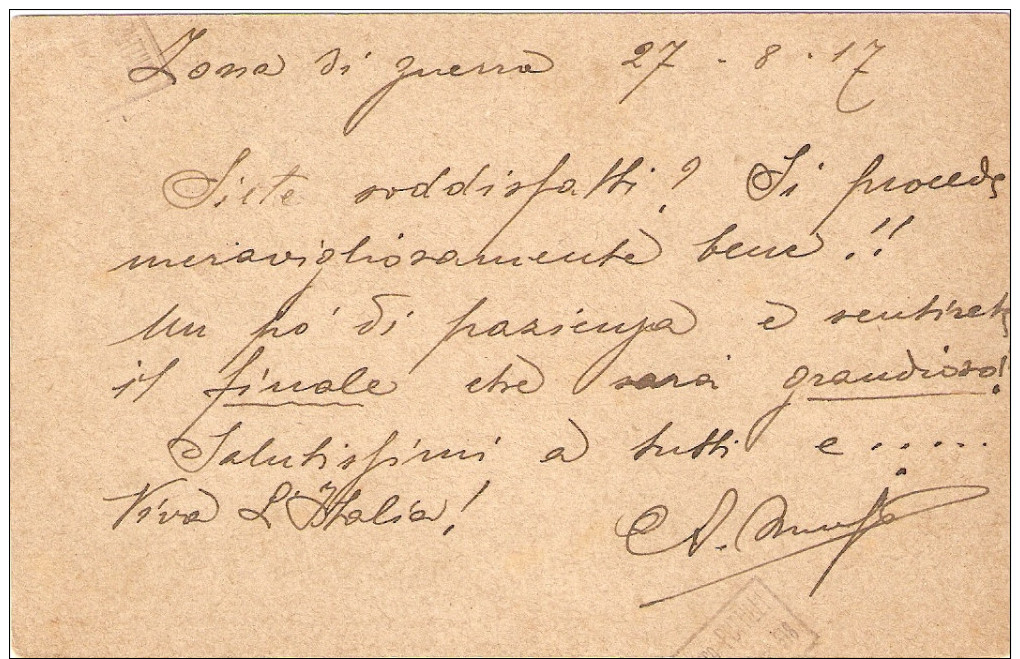 Zona di guerra 27 - 8 - 17
Siete soddisfatti? Si procede
meravigliosamente bene!!
Un po' di pazienza e sentirete
il finale che sarà grandioso!
Salutissimi a tutti e .....
Viva L'Italia!
A.